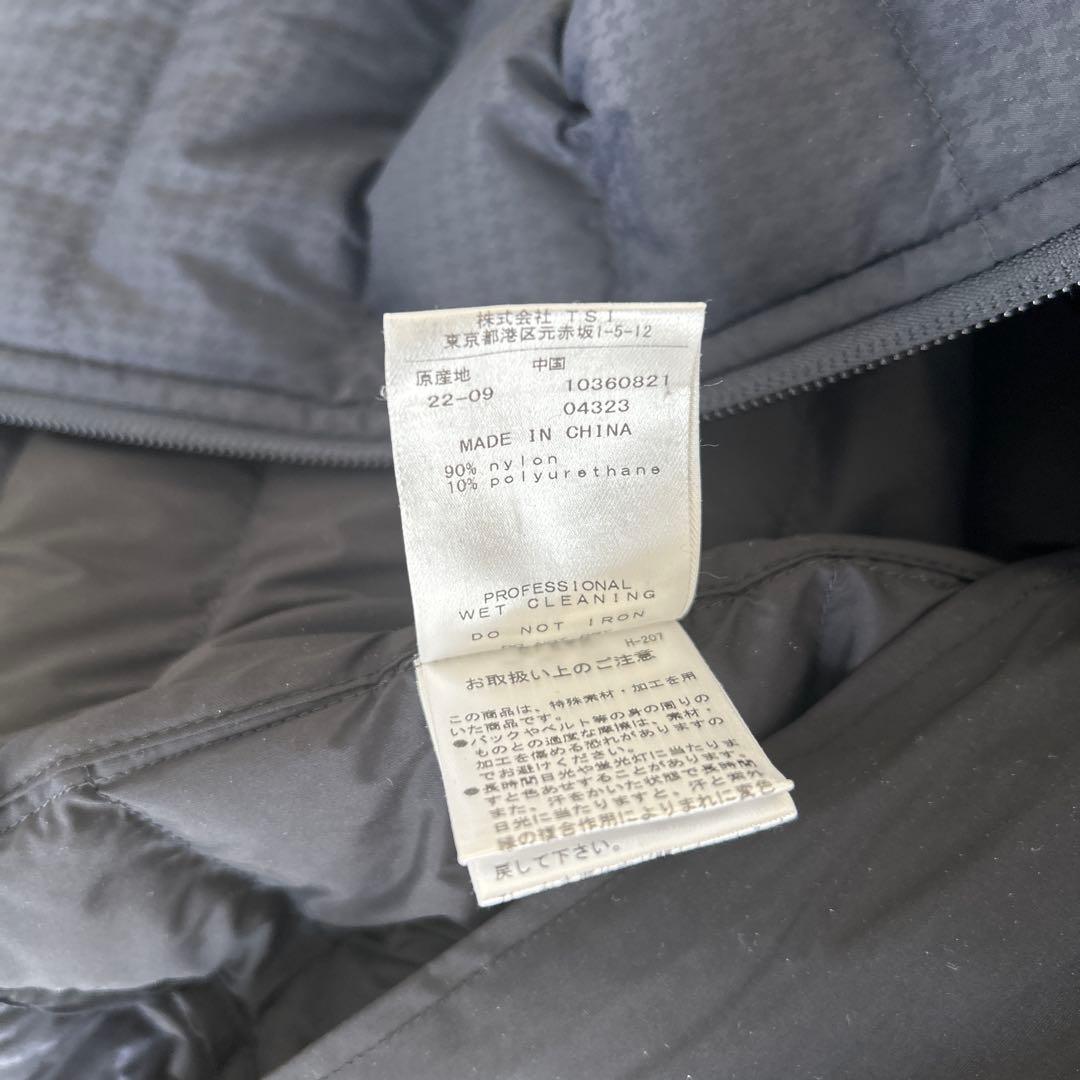 株式会社 TSI
東京都港区元赤坂1-5-12
原産地 中国
22-09 10360821
04323
MADE IN CHINA
90% nylon
10% polyurethane
PROFESSIONAL
WET CLEANING
DO NOT IRON
H-207
お取扱い上のご注意
この商品は、特殊素材・加工を用
いた商品です。
●バックやベルト等の身の周りの
ものとの過度な摩擦は、素材・
加工を傷める恐れがありますの
でお避けください。
●長時間日光や蛍光灯に当たりま
すと色あせすることがあります。
また、汗をかいた状態で長時間
日光に当たりますと、汗と紫外
線の複合作用によりまれに変色
戻して下さい。